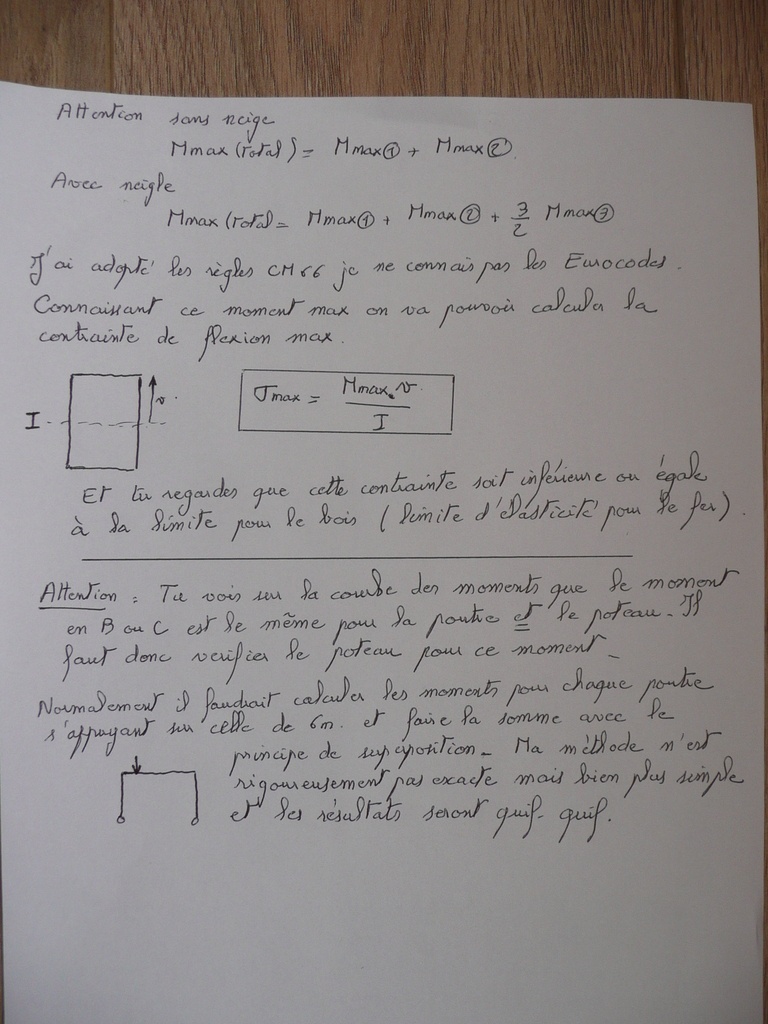 Attention sans neige
Mmax (total) = Mmax① + Mmax②.
Avec neigle
Mmax (total = Mmax① + Mmax② + 3/2 Mmax③
J'ai adopté les règles CM66 je ne connais pas les Eurocodes.
Connaissant ce moment max on va pouvoir calculer la
contrainte de flexion max.
I v.
σmax = Mmax.v / I
Et tu regardes que cette contrainte soit inférieure ou égale
à la limite pour le bois (limite d'élasticité pour le fer).
Attention : Tu vois sur la courbe des moments que le moment
en B ou C est le même pour la poutre et le poteau. Il
faut donc verifier le poteau pour ce moment_
Normalement il faudrait calculer les moments pour chaque poutre
s'appuyant sur celle de 6m. et faire la somme avec le
principe de superposition_ Ma méthode n'est
rigoureusement pas exacte mais bien plus simple
et les résultats seront quif-quif.